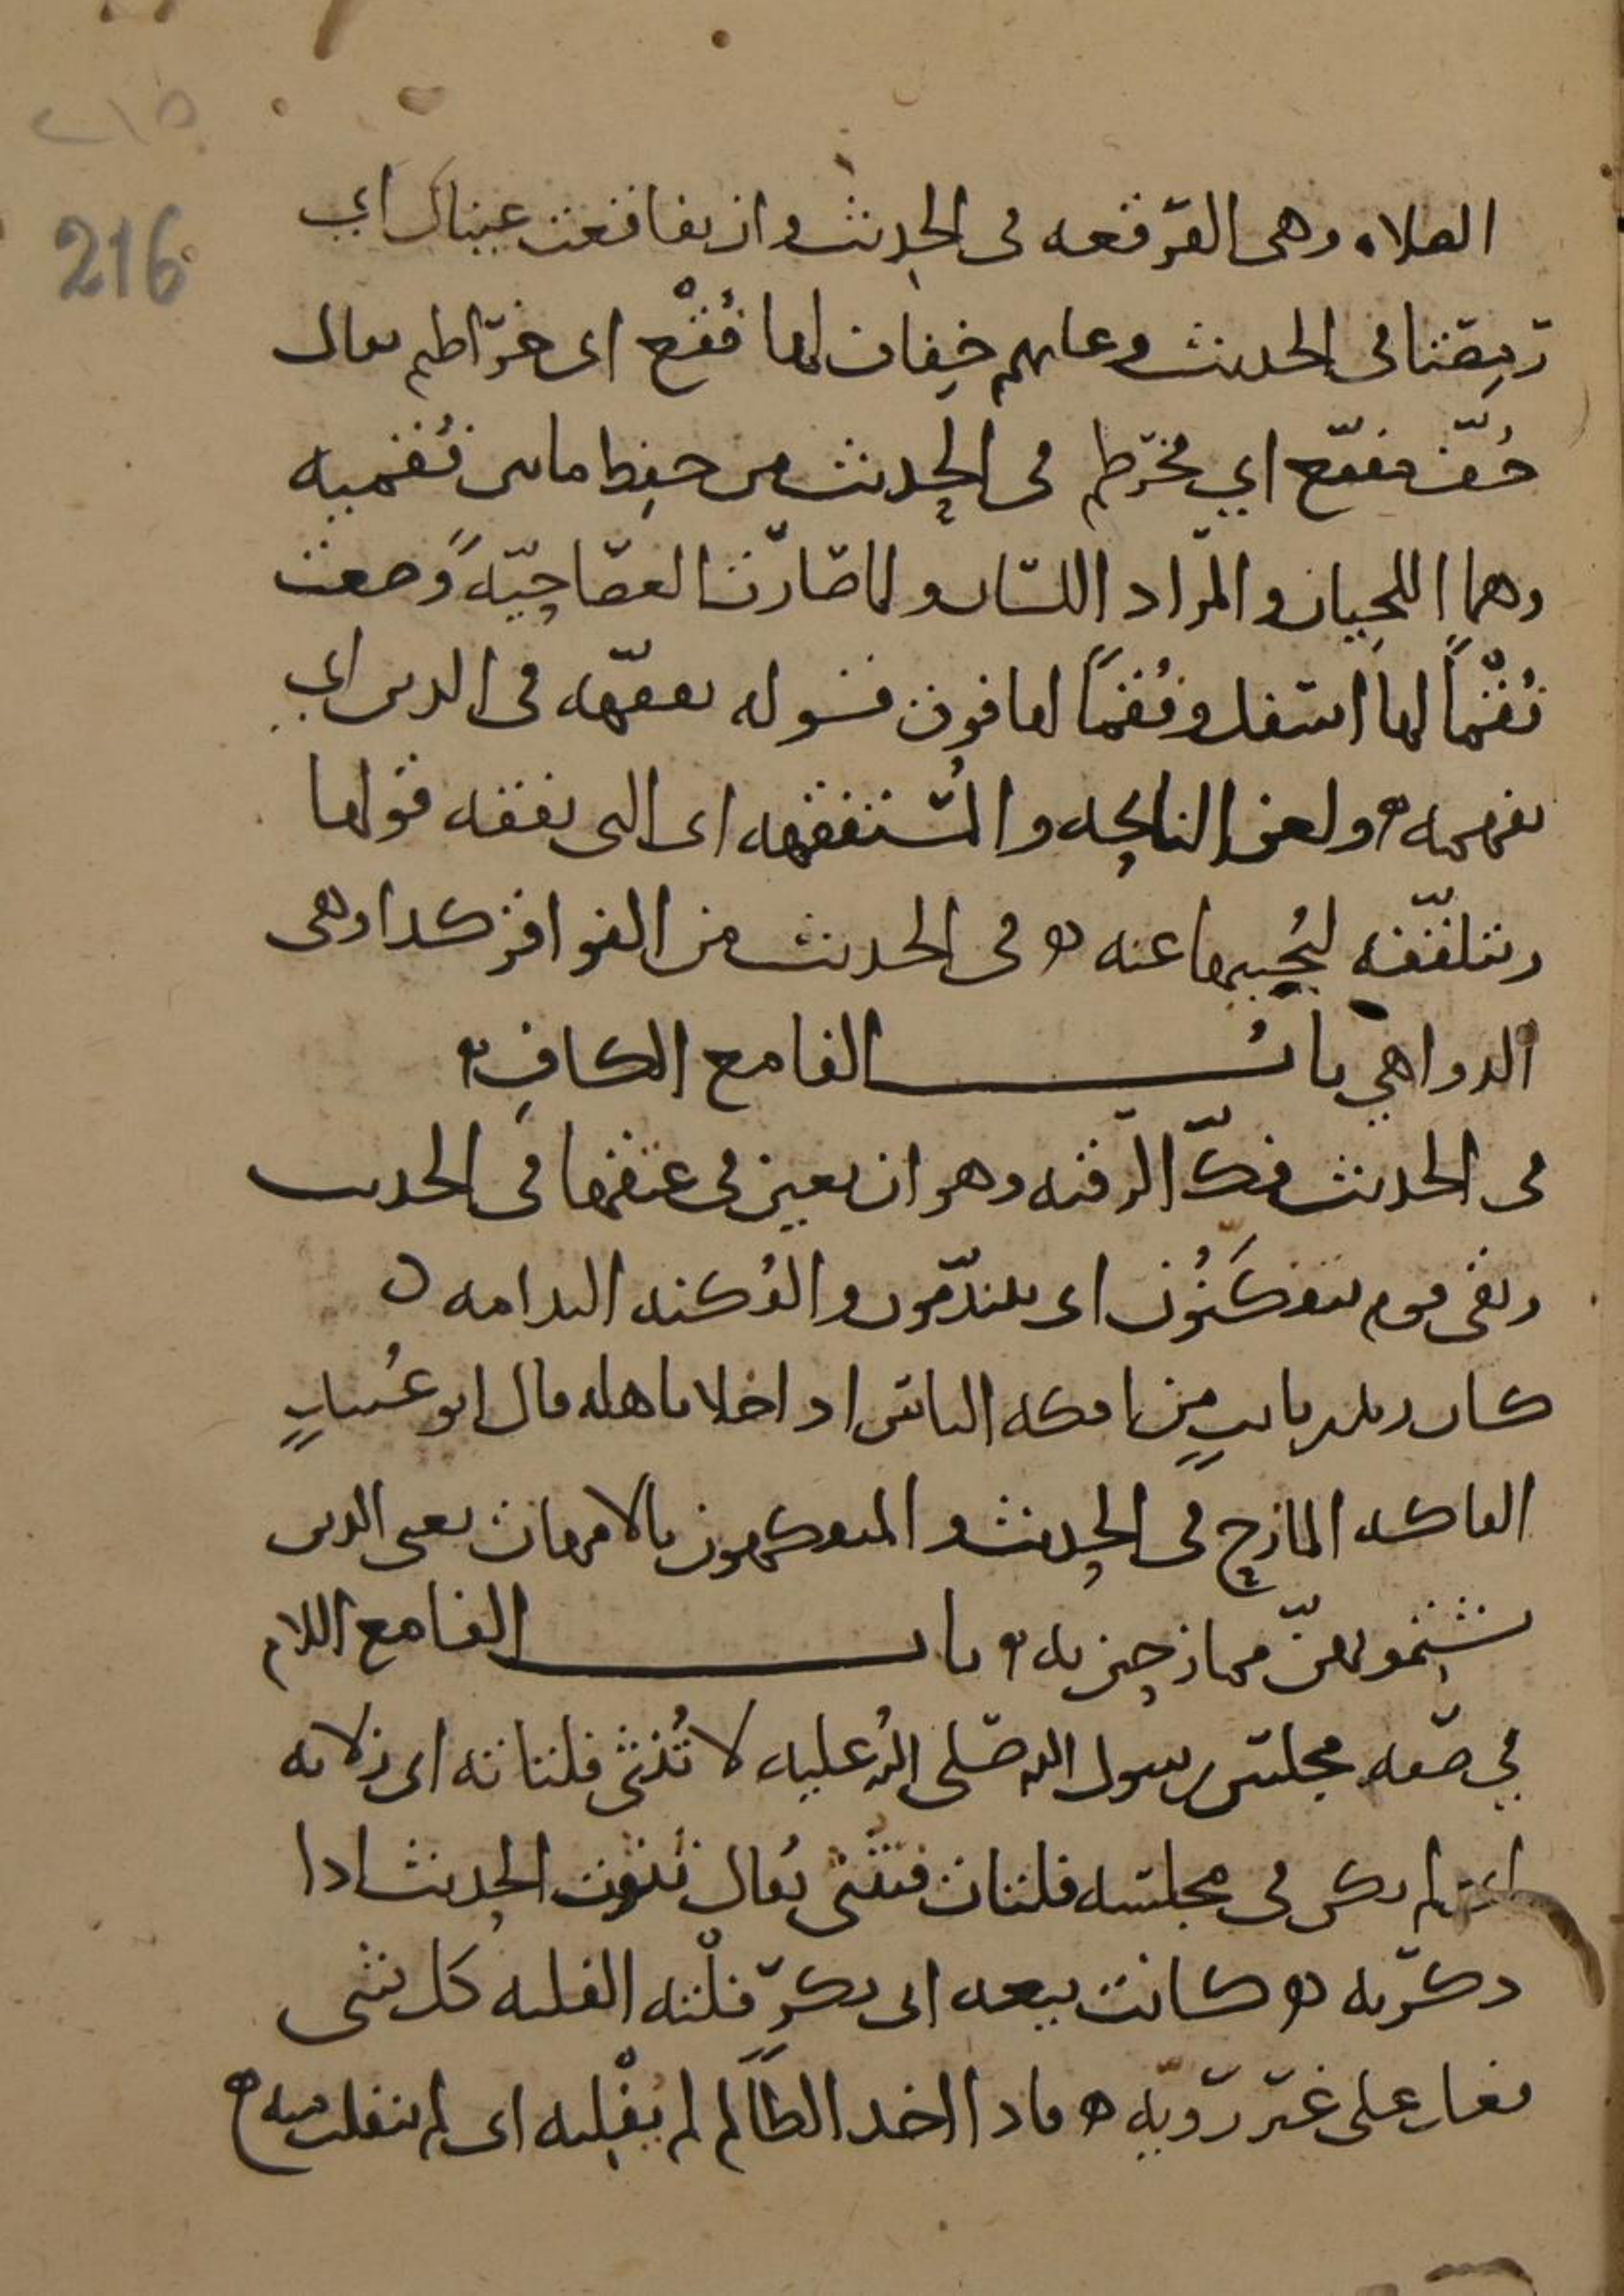 ٢١٥
216
الصلاه وهى الفرقعه فى الحديث وان تفاقعت عيناك اي
رمصتا فى الحديث وعليهم خفاف لها فُقْع اى خراطيم يقال
خُفّ مفقّع اي مخرطم فى الحديث من حفظ ما بين فُقميه
وهما اللحيان والمراد اللسان ولما صارت العصا حيّةً وضعت
فُقْماً لها اسفل وفُقماً لها فوق قوله يفقّهه فى الدين اي
يفهمه ه ولعن النايحه والمُستفقهه اى التى تفقه قولها
وتتلقّفه لتُجيبها عنه ه فى الحديث من الفواقر كذا وهى
الدواهي باب الفا مع الكاف ه
فى الحديث فكّ الرقبه وهو ان يعين فى عتقها فى الحديث
وبقى قوم يتفكَّنُون اى يتندّمون والفُكنه الندامه ه
كان زيد بن ثابتٍ من افكه الناس اذا خلا باهله قال ابو عُبيدٍ
الفاكه المازح فى الحديث والمتفكهون بالامهات يعنى الذين
يشتمونهنّ ممازحين به ه باب الفا مع اللام
في صفه مجلس رسول الله صلى الله عليه لا تُنثى فلتاته اى زلاته
اى لم يكن فى مجلسه فلتات فتنثى يُقال نثوت الحديث اذا
ذكرته ه كانت بيعه ابى بكرٍ فلْته الفلته كل شى
فعل على غير رويّه ه فاذا اخذ الظالم لم يُفْلته اى لم ينفلت منه ه